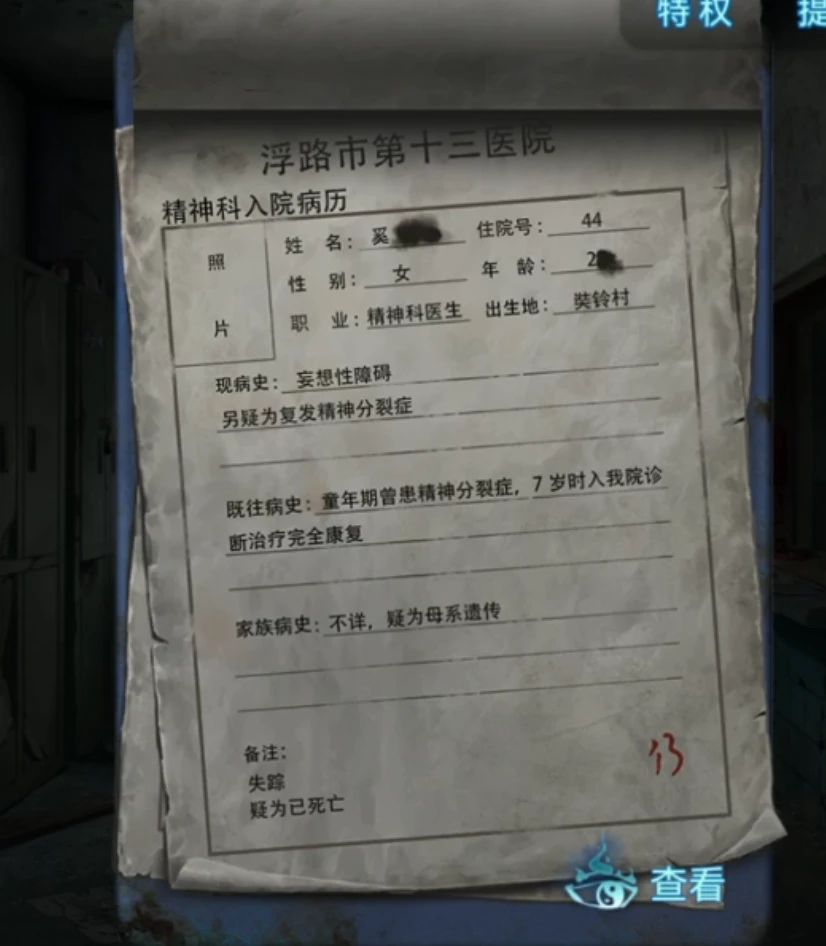 特权 提
浮路市第十三医院
精神科入院病历
照片
姓 名：奚 住院号：44
性 别：女 年 龄：2
职 业：精神科医生 出生地：奘铃村
现病史：妄想性障碍
另疑为复发精神分裂症
既往病史：童年期曾患精神分裂症，7岁时入我院诊
断治疗完全康复
家族病史：不详，疑为母系遗传
备注：
失踪
疑为已死亡
13
查看